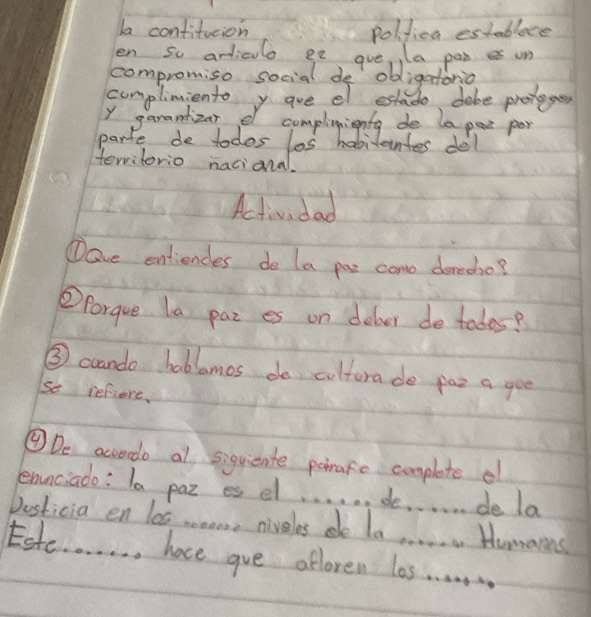 la contitucion politica establece
en su articulo 22 que la paz es un
compromiso social de obligatorio
cumplimiento y que el estado debe proteger
y garantizar el cumplimiento de la paz por
parte de todos los habitantes del
territorio nacional.
Actividad
① Que entiendes de la paz como derecho?
② Porque la paz es un deber de todos?
③ cuando hablamos de cultura de paz a que
se refiere.
④ De acuerdo al siguiente parrafo complete el
enunciado: la paz es el ...... de ....... de la
Justicia en los ....... niveles de la ...... Humanas
Este ....... hace que afloren los ......